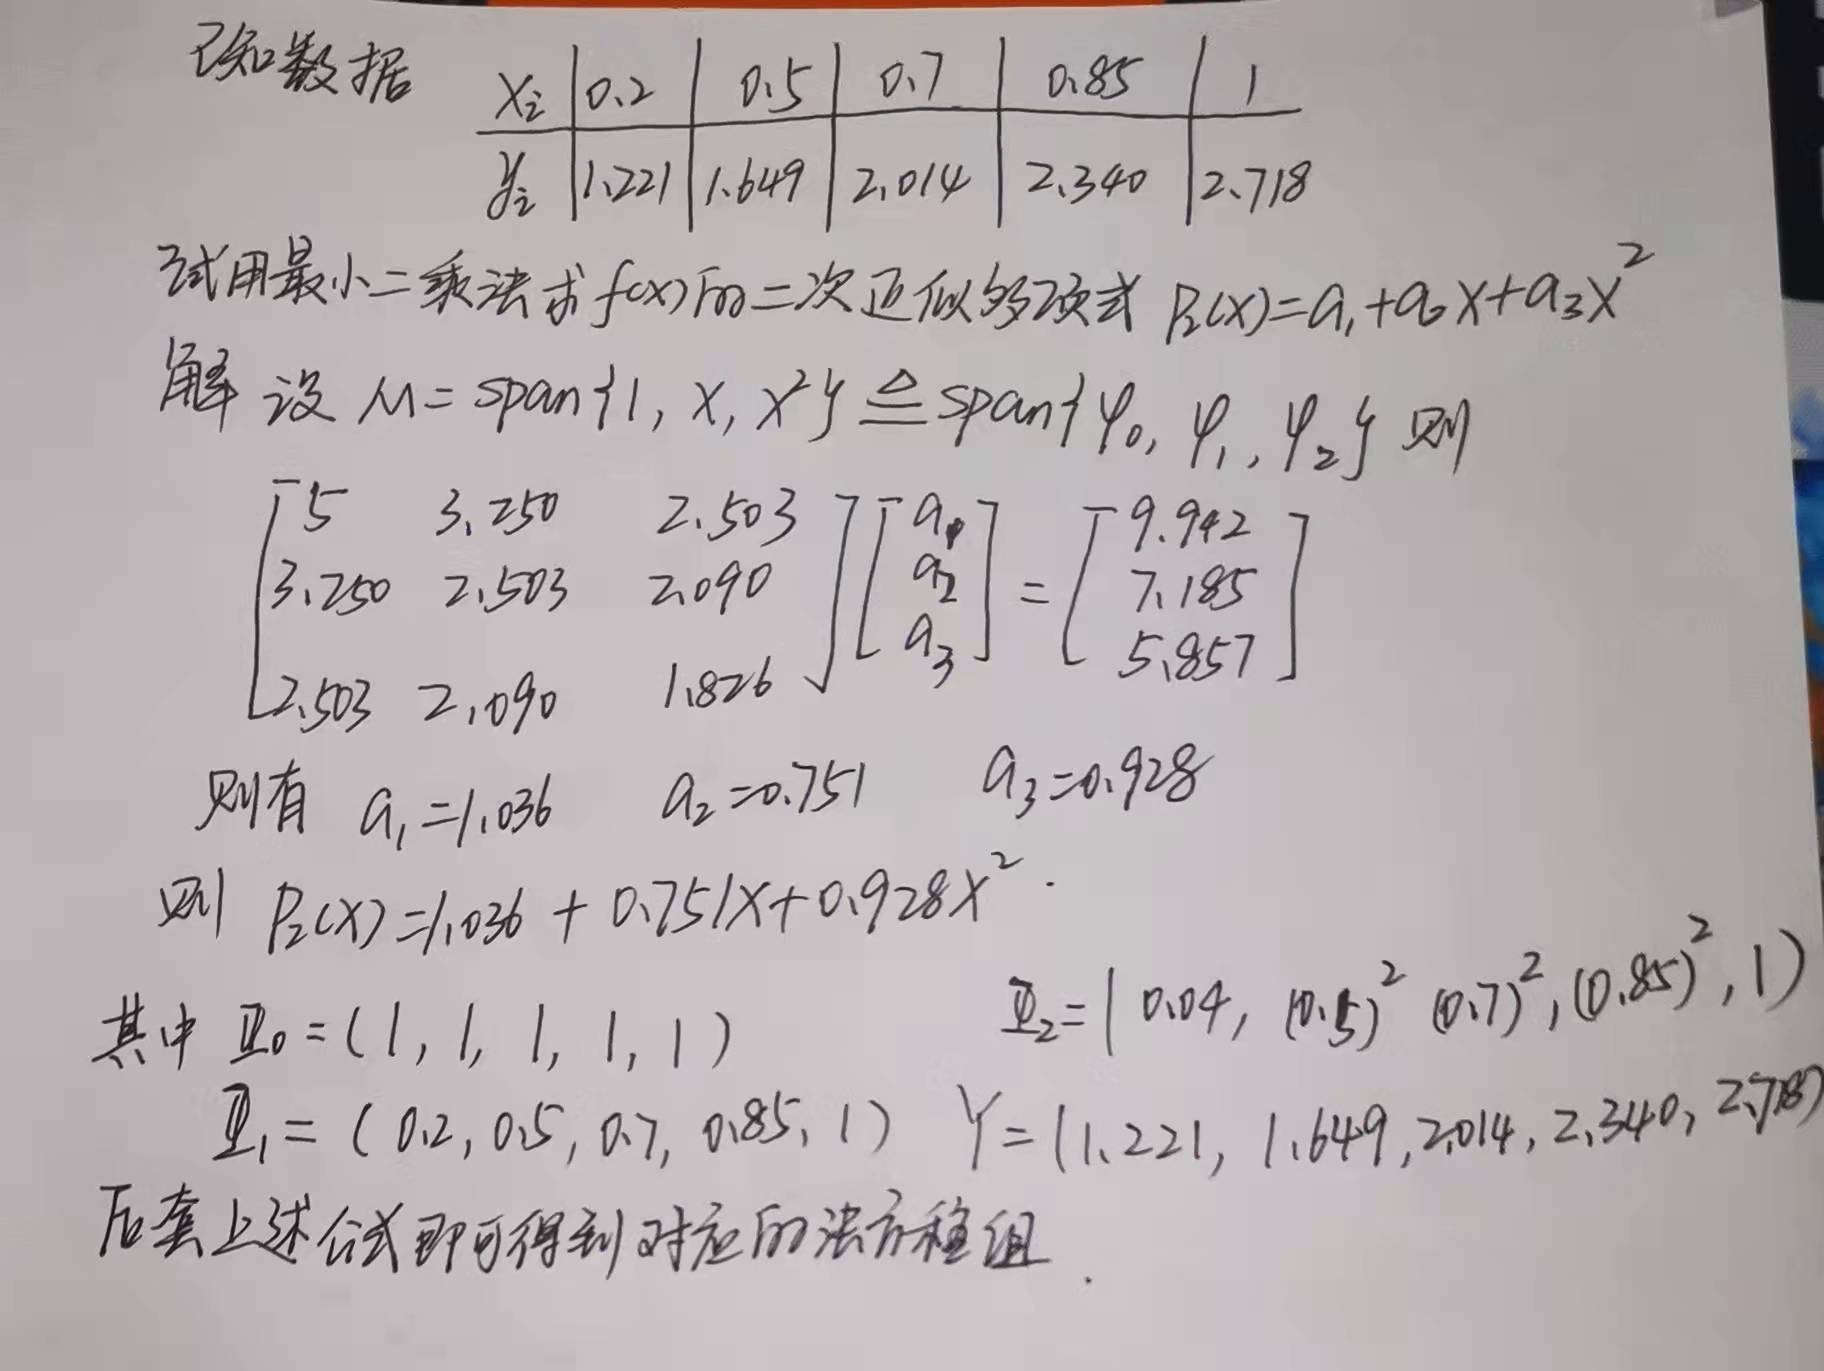 已知数据
xᵢ 0.2 0.5 0.7 0.85 1
yᵢ 1.221 1.649 2.014 2.340 2.718
试用最小二乘法求f(x)的二次近似多项式 P₂(x)=a₁+a₂x+a₃x²
解 设 M=span{1, x, x²} ≜ span{φ₀, φ₁, φ₂} 则
[5 3.250 2.503] [a₁] [9.942]
[3.250 2.503 2.090] [a₂] = [7.185]
[2.503 2.090 1.826] [a₃] [5.857]
则有 a₁=1.036 a₂=0.751 a₃=0.928
则 P₂(x)=1.036+0.751x+0.928x².
其中 Φ₀=(1, 1, 1, 1, 1) Φ₂=(0.04, (0.5)² (0.7)², (0.85)², 1)
Φ₁=(0.2, 0.5, 0.7, 0.85, 1) Y=(1.221, 1.649, 2.014, 2.340, 2.718)
后套上述公式即可得到对应的法方程组.